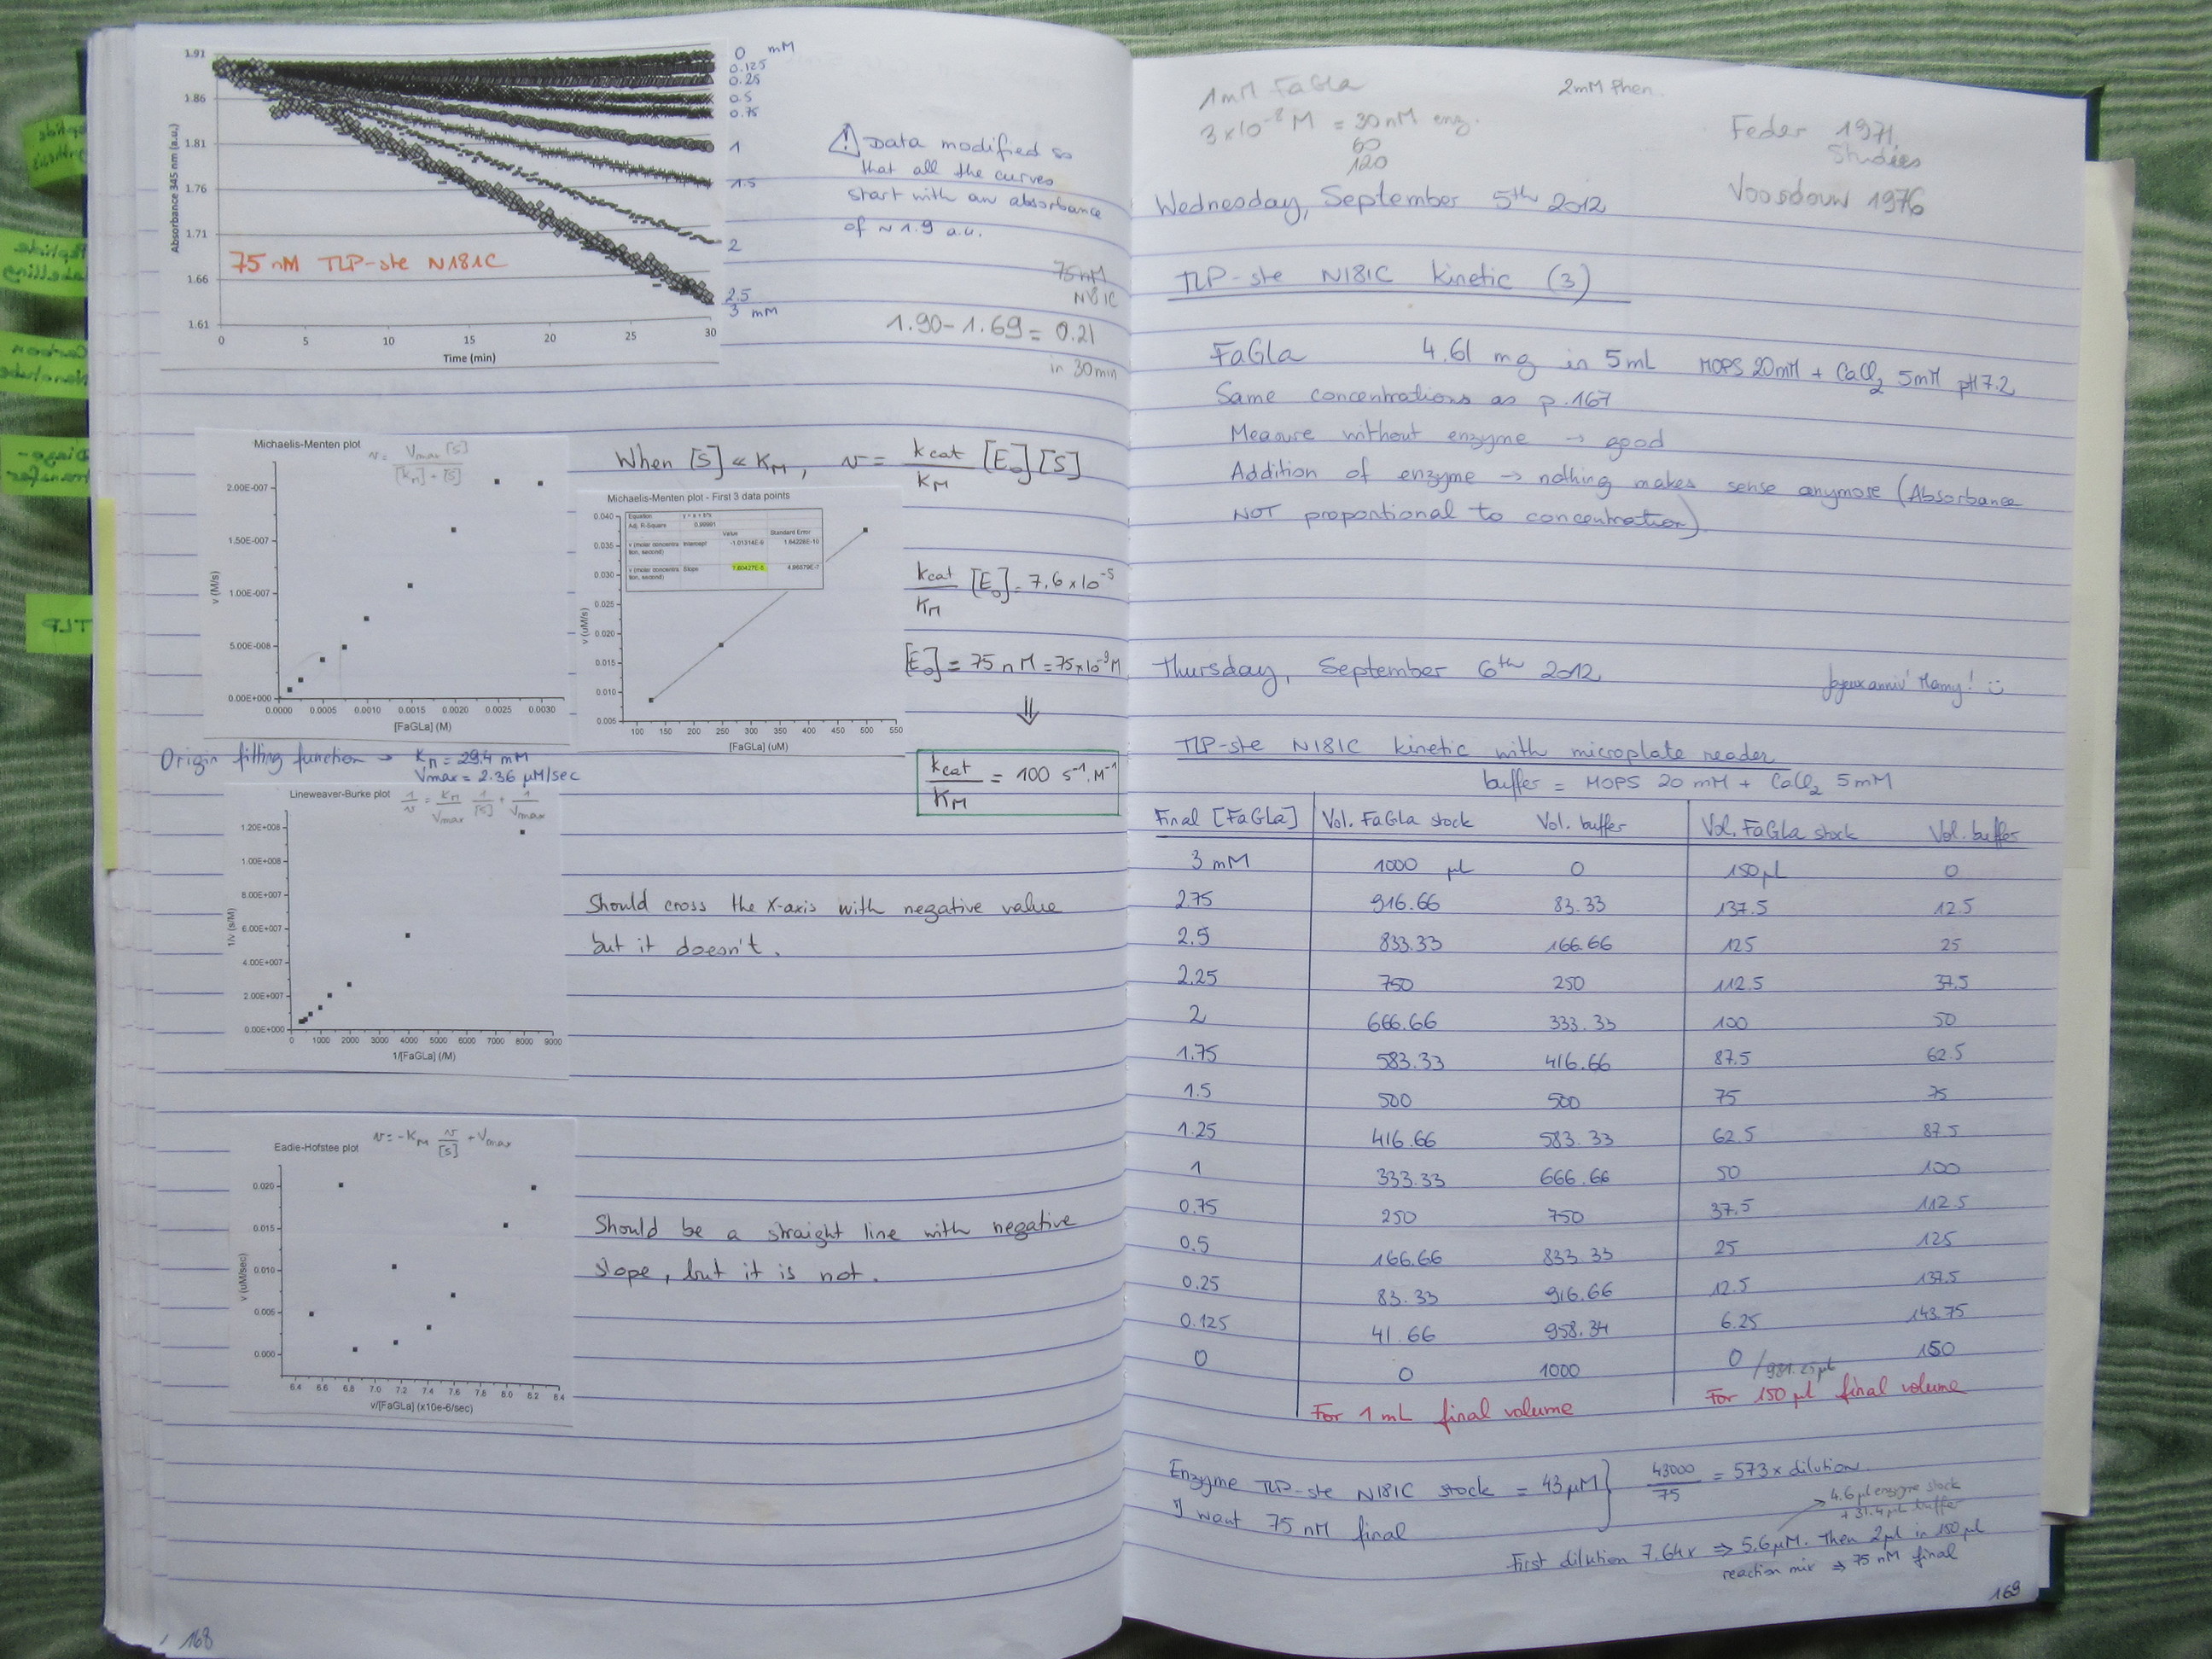 1.91
1.86
1.81
1.76
1.71
1.66
1.61
Absorbance 345 nm (a.u.)
0 5 10 15 20 25 30
Time (min)
75 nM TLP-ste N181C
0 mM
0.125
0.25
0.5
0.75
1
1.5
2
2.5
3 mM
⚠ Data modified so
that all the curves
start with an absorbance
of ~ 1.9 a.u.
75 nM
N181C
1.90 - 1.69 = 0.21
in 30min
Michaelis-Menten plot
v = Vmax [S] / [KM] + [S]
2.00E-007
1.50E-007
1.00E-007
5.00E-008
0.00E+000
v (M/s)
0.0000 0.0005 0.0010 0.0015 0.0020 0.0025 0.0030
[FaGLa] (M)
When [S] << KM, v = kcat/KM [E0] [S]
Michaelis-Menten plot - First 3 data points
Equation y = a + b*x
Adj. R-Square 0.99991
Value Standard Error
v (molar concentra tion, second) Intercept -1.01314E-9
v (molar concentra tion, second) Slope 7.60427E-5
0.040
0.035
0.030
0.025
0.020
0.015
0.010
0.005
v (uM/s)
100 150 200 250 300 350 400 450 500 550
[FaGLa] (uM)
kcat/KM [E0] = 7.6 x 10^-5
[E0] = 75 nM = 75x10^-9 M
⇓
kcat/KM = 100 s^-1. M^-1
Origin fitting function → KM = 29.4 mM
Vmax = 2.36 µM/sec
Lineweaver-Burke plot
1/v = KM/Vmax 1/[S] + 1/Vmax
1.20E+008
1.00E+008
8.00E+007
6.00E+007
4.00E+007
2.00E+007
0.00E+000
1/v (s/M)
0 1000 2000 3000 4000 5000 6000 7000 8000 9000
1/[FaGLa] (/M)
Should cross the X-axis with negative value
but it doesn't.
Eadie-Hofstee plot
v = -KM v/[S] + Vmax
0.020
0.015
0.010
0.005
0.000
v (uM/sec)
6.4 6.6 6.8 7.0 7.2 7.4 7.6 7.8 8.0 8.2 8.4
v/[FaGLa] (x10e-6/sec)
Should be a straight line with negative
slope, but it is not.
168
Peptide
Labelling
Carbon
Nanotube
Diazo-
transfer
TLP
1mM FaGla
3 x 10^-8 M = 30 nM enz.
60
120
2mM Phen.
Feder 1971
Studies
Voordouw 1976
Wednesday, September 5th 2012
TLP-ste N181C kinetic (3)
FaGla 4.61 mg in 5 mL MOPS 20mM + CaCl2 5mM pH 7.2
Same concentrations as p.167
Measure without enzyme → good
Addition of enzyme → nothing makes sense anymore (Absorbance
NOT proportional to concentration).
Thursday, September 6th 2012
Joyeux anniv' Mamy! :)
TLP-ste N181C kinetic with microplate reader
buffer = MOPS 20 mM + CaCl2 5 mM
Final [FaGLa] Vol. FaGla stock Vol. buffer Vol. FaGla stock Vol. buffer
3 mM 1000 µL 0 150 µL 0
2.75 916.66 83.33 137.5 12.5
2.5 833.33 166.66 125 25
2.25 750 250 112.5 37.5
2 666.66 333.33 100 50
1.75 583.33 416.66 87.5 62.5
1.5 500 500 75 75
1.25 416.66 583.33 62.5 87.5
1 333.33 666.66 50 100
0.75 250 750 37.5 112.5
0.5 166.66 833.33 25 125
0.25 83.33 916.66 12.5 137.5
0.125 41.66 958.34 6.25 143.75
0 0 1000 0 150
For 1 mL final volume
For 150 µL final volume
Enzyme TLP-ste N181C stock = 43 µM
I want 75 nM final
43000/75 = 573 x dilution
4.6 µL enzyme stock
+ 31.4 µL buffer
First dilution 7.64x ⇒ 5.6 µM. Then 2 µL in 150 µL
reaction mix ⇒ 75 nM final
169